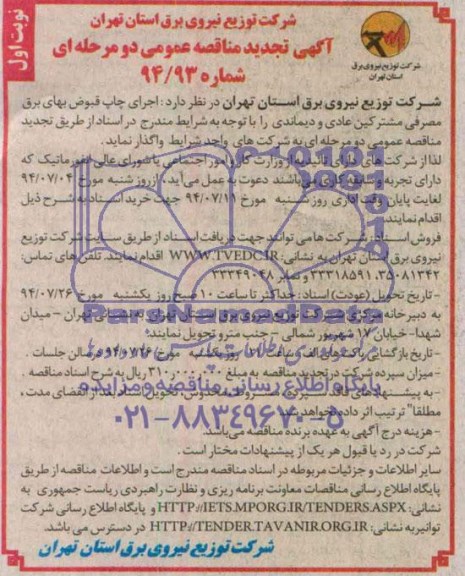 نوبت اول
شرکت توزیع نیروی برق استان تهران
آگهی تجدید مناقصه عمومی دو مرحله ای
شماره ۹۴/۹۳
شرکت توزیع نیروی برق
استان تهران
شرکت توزیع نیروی برق استان تهران در نظر دارد: اجرای چاپ قبوض بهای برق
مصرفی مشترکین عادی و دیماندی را با توجه به شرایط مندرج در اسناد از طریق تجدید
مناقصه عمومی دو مرحله ای به شرکت های واجد شرایط واگذار نماید.
لذا از شرکت های دارای تائیدیه از وزارت کار و امور اجتماعی یا شورای عالی انفورماتیک که
دارای تجربه و سابقه کاری می باشند دعوت به عمل می آید، از روز شنبه مورخ ۹۴/۰۷/۰۴
لغایت پایان وقت اداری روز شنبه مورخ ۹۴/۰۷/۱۱ جهت خرید اسناد به شرح ذیل
اقدام نمایند.
فروش اسناد: شرکت ها می توانند جهت دریافت اسناد از طریق سایت شرکت توزیع
نیروی برق استان تهران به نشانی: WWW.TVEDC.IR اقدام نمایند. تلفن های تماس:
۳۵۰۸۱۳۴۲، ۳۳۳۱۸۵۹۱ و نمابر ۳۳۳۴۹۰۴۸
- تاریخ تحویل (عودت) اسناد: حداکثر تا ساعت ۱۰ صبح روز یکشنبه مورخ ۹۴/۰۷/۲۶
به دبیرخانه مرکزی شرکت توزیع نیروی برق استان تهران به نشانی تهران - میدان
شهدا- خیابان ۱۷ شهریور شمالی - جنب مترو تحویل نمایند.
- تاریخ بازگشایی پاکت روز یکشنبه مورخ ۹۴/۰۷/۲۶ در سالن جلسات
- میزان سپرده شرکت در تجدید مناقصه به مبلغ ریال به شرح اسناد مناقصه
- به پیشنهادهای فاقد سپرده، مشروط، مخدوش، تحویل اسناد بعد از انقضای مدت،
مطلقا" ترتیب اثر داده نخواهد شد.
- هزینه درج آگهی به عهده برنده مناقصه می باشد.
شرکت در رد یا قبول هر یک از پیشنهادات مختار است.
سایر اطلاعات و جزئیات مربوطه در اسناد مناقصه مندرج است و اطلاعات مناقصه از طریق
پایگاه اطلاع رسانی مناقصات معاونت برنامه ریزی و نظارت راهبردی ریاست جمهوری به
نشانی: HTTP://IETS.MPORG.IR/TENDERS.ASPX و پایگاه اطلاع رسانی شرکت
توانیر به نشانی: HTTP://TENDER.TAVANIR.ORG.IR در دسترس می باشد.
شرکت توزیع نیروی برق استان تهران
ParsNamadData
پایگاه اطلاع رسانی مناقصه و مزایده
۰۲۱-۸۸۳۴۹۶۷۰-۵